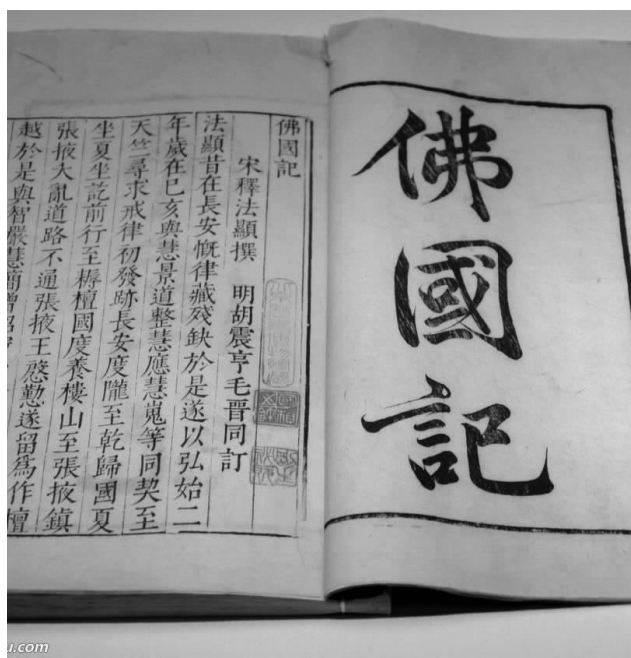 佛國記
佛國記
宋釋法顯撰 明胡震亨毛晉同訂
法顯昔在長安慨律藏殘缺於是遂以弘始二
年歲在已亥與慧景道整慧應慧嵬等同契至
天竺尋求戒律初發跡長安度隴至乾歸國夏
坐夏坐訖前行至耨檀國度養樓山至張掖鎮
張掖大亂道路不通張掖王慇懃遂留爲作檀
越於是與智嚴慧簡僧紹
u.com